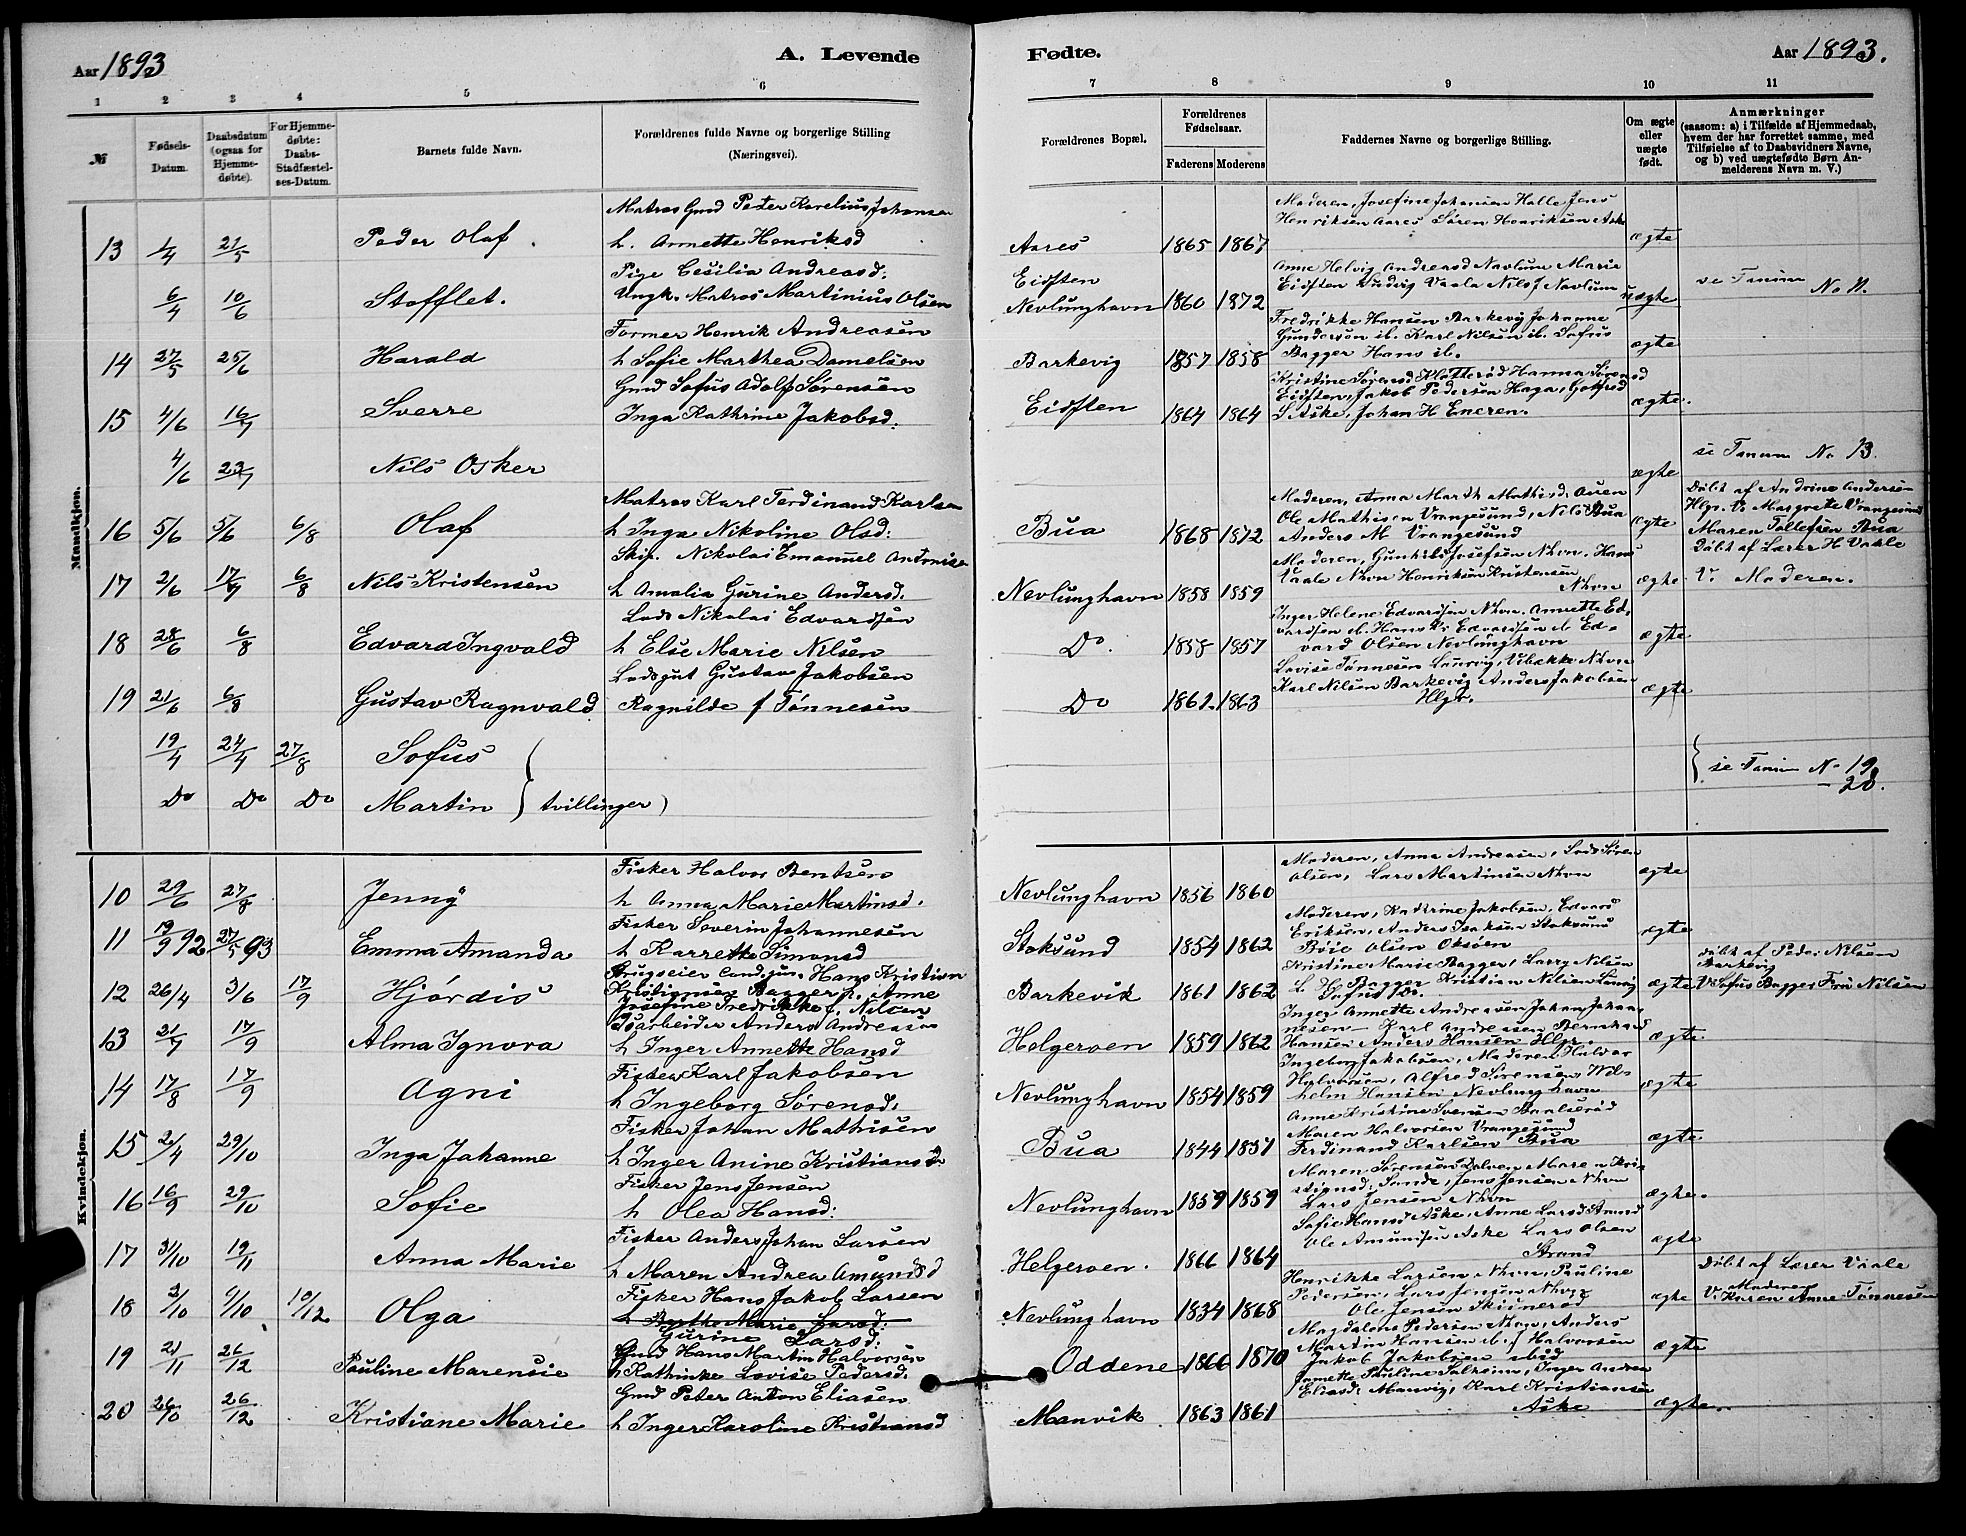 Aar 1893
A. Levende
Fødte.
Aar 1893.
1 2 3 4 5 6 7 8 9 10 11
№
Fødsels-Datum.
Daabsdatum (ogsaa for Hjemme-døbte).
For Hjemme-døbte: Daabs-Stadfæstel-ses-Datum.
Barnets fulde Navn.
Forældrenes fulde Navne og borgerlige Stilling
(Næringsvei).
Forældrenes Bopæl.
Forældrenes Fødselsaar.
Faderens Moderens
Faddernes Navne og borgerlige Stilling.
Om ægte eller uægte født.
Anmærkninger
(saasom: a) i Tilfælde af Hjemmedaab, hvem der har forrettet samme, med Tilføielse af to Daabsvidners Navne, og b) ved uægtefødte Børn An-melderens Navn m. V.)
Mandkjøn.
Matros Gmd Peter Karelius Johansen
Moderen, Josefine Johansen Halle Jens
Henriksen Aares Søren Henriksen Aske
13 21/5 Peder Olaf. h. Annette Henriksd Aares 1865 1867 ægte
Pige Cecilia Andreasd. Eidsten
Anne Helvig Andreasd Navlum Marie
Eidsten Ludvig Vaala Nils J Navlum
6/4 10/6 Stofflet. Ungk. Matros Martinius Olsen Nevlunghavn 1860 1872 uægte se Tanum No 11.
Former Henrik Andreasen
Fredrikke Hansen Barkevig Johanne
Gundersen ib. Karl Nilsen ib. Sofus
14 27/5 25/6 Harald h Sofie Marthea Danielsen Barkevig 1857 1858 Bagger Hans ib. ægte
Gmd Sofus Adolf Sørensen
Kristine Sørensd Klatterød Hanna Sørensd
Eidsten, Jakob Pedersen Haga, Gotfred
15 4/6 16/7 Sverre Inga Kathrine Jakobsd. Eidsten 1864 1864 S Aske, Johan H Eneren. ægte.
4/6 23/7 Nils Osker ægte se Tanum No 13.
Matros Karl Ferdinand Karlsen
Moderen, Anna Marth Mathisd. Auen
Ole Mathisen Vrangesund, Nils Bua
Døbt af Andrine Andersen
Hlgr. V. Margrete Vrangesund
16 5/6 5/6 6/8 Olaf h Inga Nikoline Olsd: Bua 1868 1872 Anders M Vrangesund ægte Maren Tollefsen Bua
Skip. Nikolai Emanuel Antonisen
Moderen, Gunhild Josefsen Nhvn. Hans
Vaale Nhvn Henriksen Kristensen
Nhvn
Døbt af Lærer H Vaale
17 2/6 17/7 6/8 Nils Kristensen h Amalia Gurine Andersd. Nevlunghavn 1858 1859 ægte V. Moderen.
Lods Nikolai Edvardsen
Inger Helene Edvardsen Nhvn. Annette Ed-
vardsen ib. Hans Kr Edvardsen ib Ed-
18 28/6 6/8 Edvard Ingvald h Else Marie Nilsen Do. 1858 1857 vard Olsen Nevlunghavn ægte
Lodsgut Gustav Jakobsen
Lovise Tønnesen Laurvig, Vibekke Nhvn
Karl Nilsen Barkevig Anders Jakobsen
19 21/6 6/8 Gustav Ragnvald. Ragnilde f Tønnesen Do 1861. 1863 Hlgr. ægte
19/4 24/4 27/8 Sofus
Do Do Do Martin (tvillinger)
se Tanum No 19
- 20.
Kvindekjøn.
Fisker Halvor Bentsen
Moderen, Anna Andreasen, Lods Søren
Olsen, Lars Martinsen Nhvn
10 29/6 27/8 Jenny h Anna Marie Martinsd. Nevlunghavn 1856 1860 ægte
Fisker Severin Johannesen
Moderen, Kathrine Jakobsen, Edvard
Eriksen, Anders Isaksen Stoksund
11 19/9 92 27/5 93 Emma Amanda h Karrette Simonsd Stoksund 1854 1862 Bøie Olsen Oksøen ægte
Brugseier Cand. jur. Hans Kristian
Kristiansen Bagger h. Anne
Josefine Fredrikke f. Nilsen
Kristine Marie Bagger, Larry Nilsen
L. H. Bagger Kristian Nilsen Laurvig
12 26/4 3/6 17/9 Hjørdis Barkevik 1861 1862 ægte
Døbt af Peder Nilsen
Barkevig
V. Sofus Bagger Fru Nilsen
Isarbeider Anders Andreasen
Inger Annette Andreasen Johan Johan-
nesen Karl Andreasen Bernhard
13 21/7 17/9 Alma Ignora h Inger Annette Hansd Helgeroen 1859 1862 Hansen Anders Hansen Hlgr. ægte.
Fisker Karl Jakobsen
Ingeborg Jakobsen, Moderen Halvor
Halvorsen, Alfred Sørensen Wil-
14 17/8 17/9 Agni h Ingeborg Sørensd. Nevlunghavn 1854 1859 helm Hansen Nevlunghavn ægte
Fisker Johan Mathisen
Anne Kristine Svensen Baalserød
Maren Halvorsen Vrangesund
15 29/10 Inga Johanne h Inger Anine Kristiansd. Bua 1844 1851 Ferdinand Karlsen Bua ægte
Fisker Jens Jensen
Maren Sørensen Dalven Maren Kri-
stiansd. Sunde, Jens Jensen Nhvn
16 16/9 29/10 Sofie h Olea Hansd: Nevlunghavn 1859 1859 Lars Jensen Nhvn ægte.
Fisker Anders Johan Larsen
Sofie Hansd Aske, Anne Larsd Strand
Ole Amundsen Aske Lars Olsen
17 31/10 19/11 Anna Marie h Maren Andrea Amundsd Helgeroen. 1866 1864 Strand ægte
Fisker Hans Jakob Larsen
Henrikke Larsen Nhvn, Pauline
Pedersen, Lars Jensen Nhvn
Døbt af Lærer Vaale
V. Moderen
18 3/10 9/10 10/12 Olga h Berthe Marie Larsd: Gurine Larsd: Nevlunghavn 1834 1868 Ole Jensen Skiinerød ægte Karen Anne Tønnesen
Gmd Hans Martin Halvorsen
Magdalene Pedersen Nhvn, Anders
Martin Hansen ib. J Halvorsen
19 21/11 26/12 Pauline Marensie h Kathinke Lovise Pedersd. Oddene 1866 1870 Jakob Jakobsen ægte
Gmd Peter Anton Eliasen
Annette Pauline Salksine, Inger Andrea
Eliasd. Manvig, Karl Kristiansen
20 26/10 26/12 Kristiane Marie h Inger Karoline Kristiansd Manvik 1863 1861 Aske ægte.